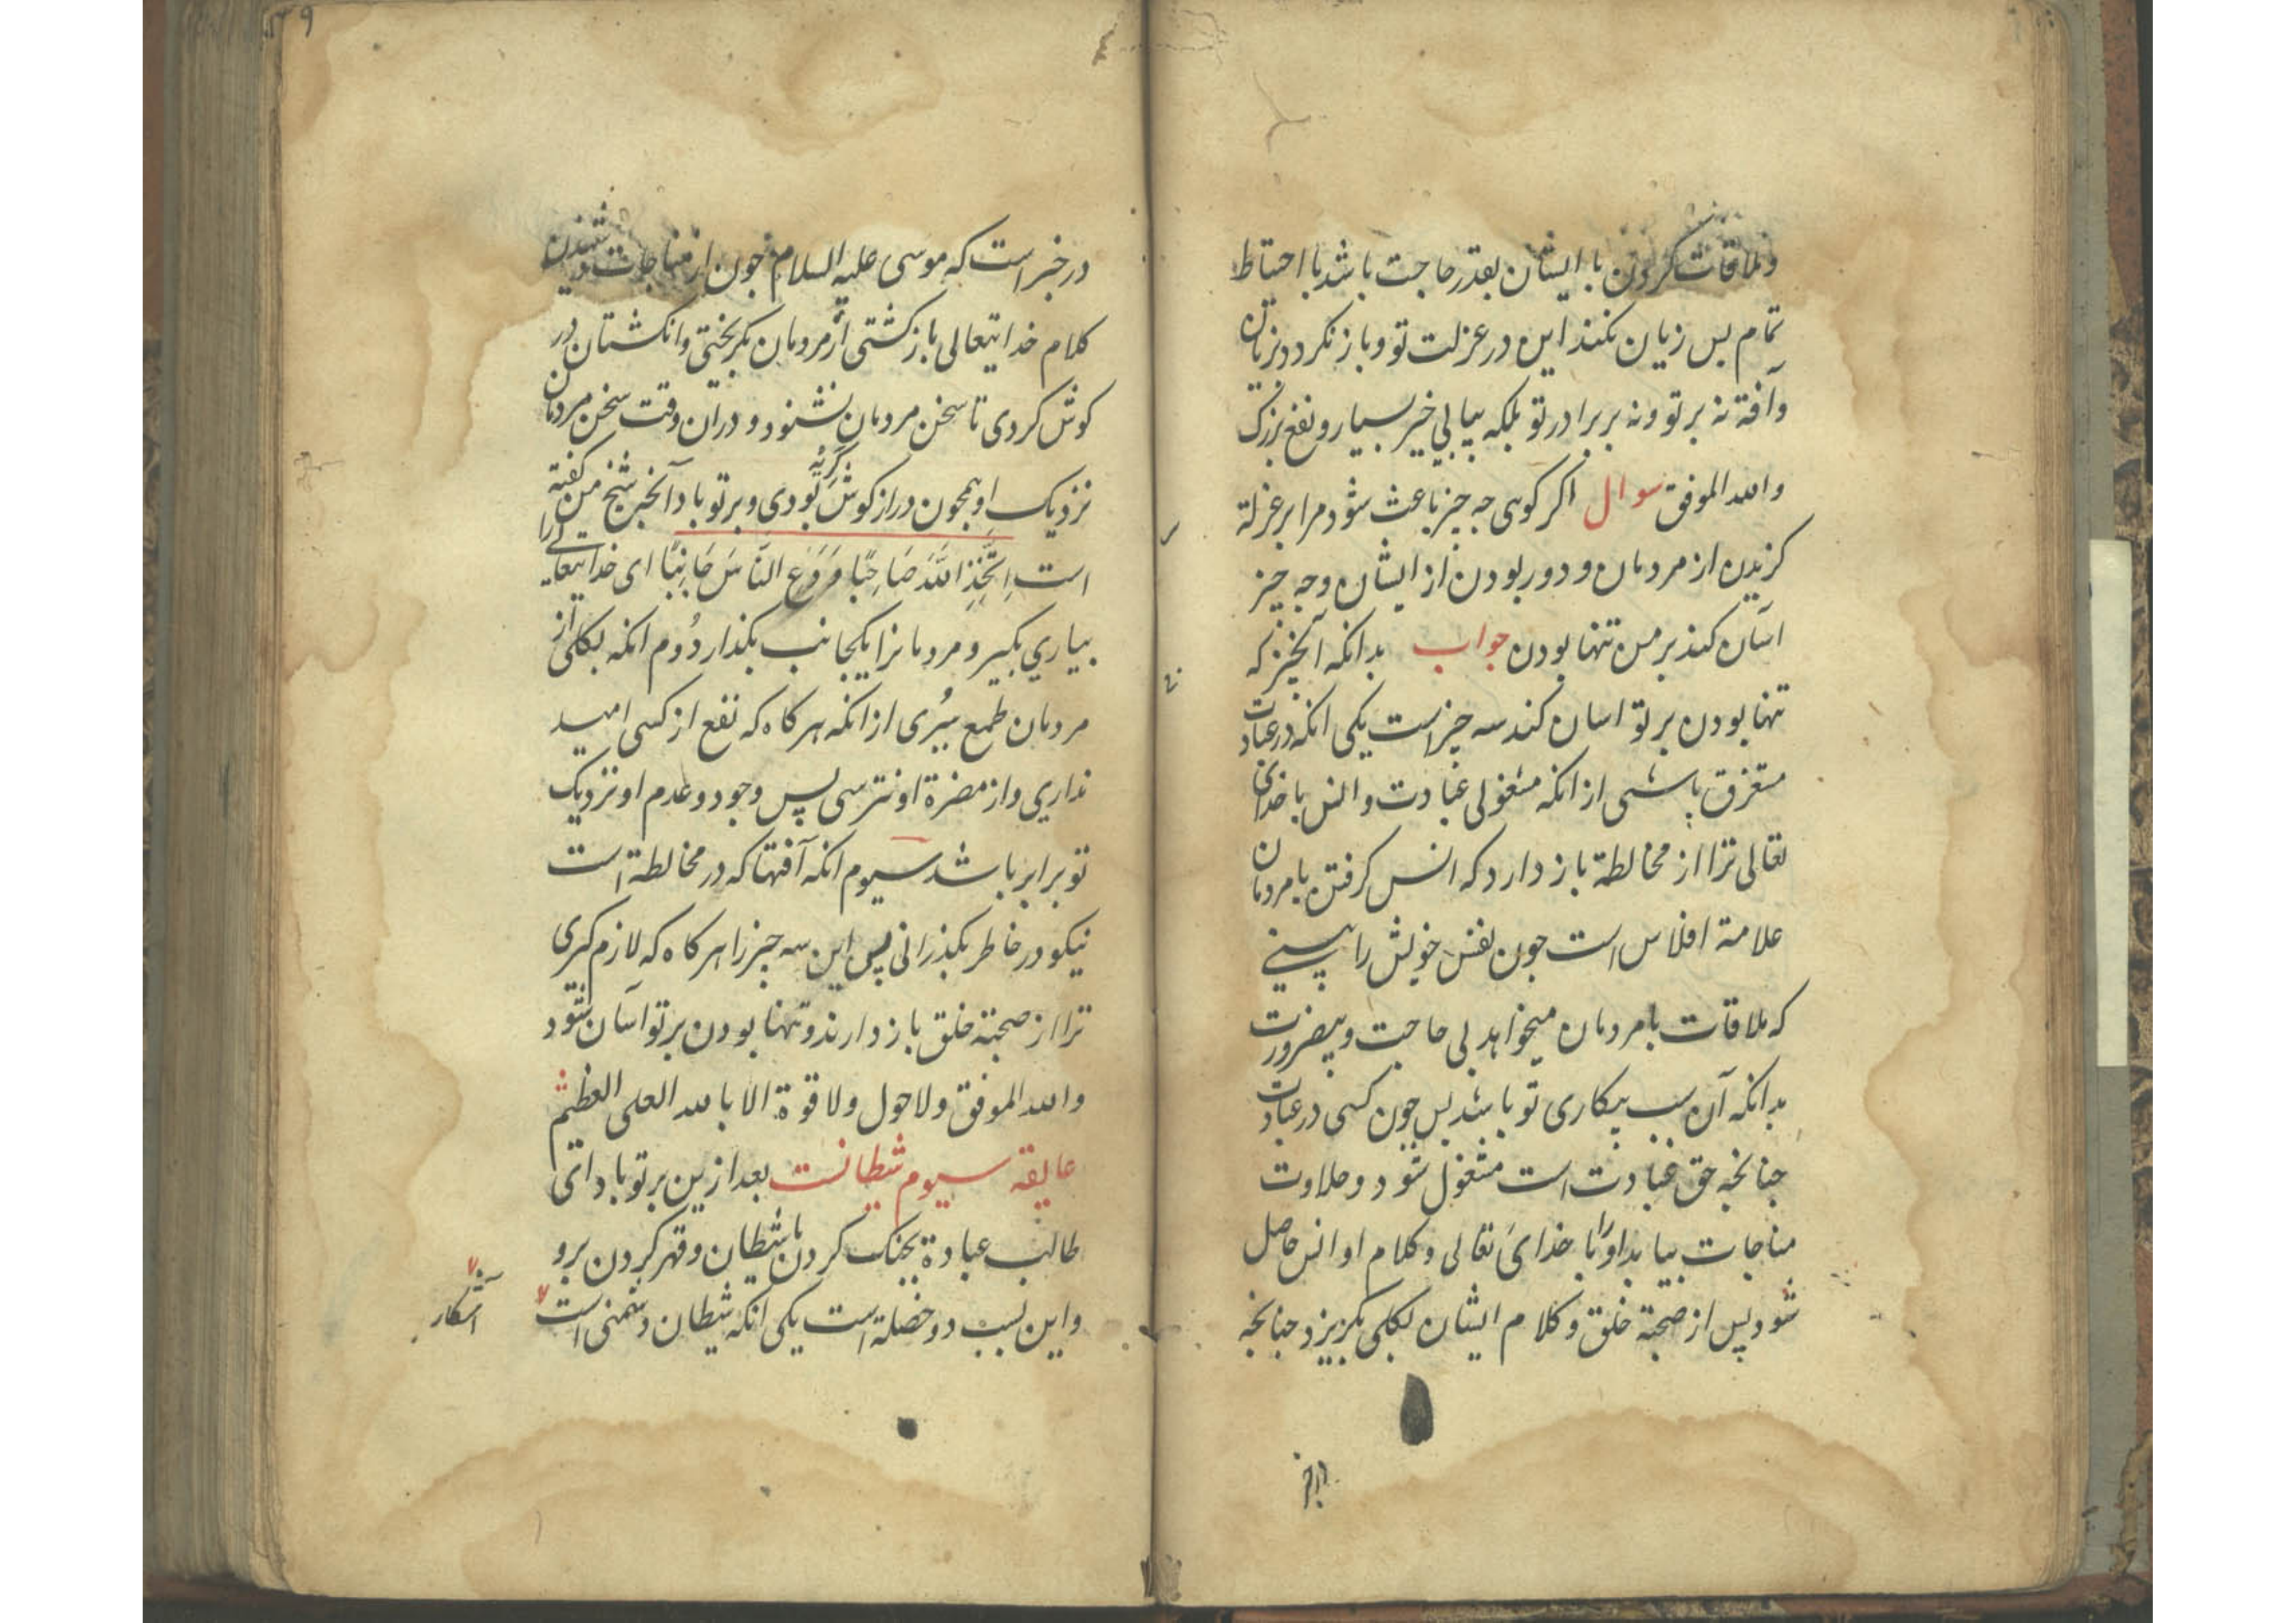 و ملاقات کردن با ایشان بقدر حاجت باشد با احتیاط
تمام بس زیان نکند این در عزلت تو و باز نکردد زیان
و آفة نه بر تو و نه بر برادر تو بلکه بیابی خیر بسیار و نفع بزرک
والله الموفق سوال اکر کوی جه جیز باعث شود مرا بر عزلة
کزیدن از مردمان و دور بودن از ایشان و جه جیز
آسان کند بر من تنها بودن جواب بدانکه آنجیز که
تنها بودن بر تو اسان کند سه چیز است یکی انکه در عبادت
مستغرق باشی از انکه مشغولی عبادت و انس با خدای
تعالی ترا از مخالطة باز دارد که انس کرفتن با مردمان
علامة افلاس است جون نفس خویش را بینی
که ملاقات با مردمان میخواهد بی حاجت و بیضرورت
بدانکه آن سبب بیکاری تو باشد بس جون کسی در عبادت
جنانجه حق عبادت است مشغول شود و حلاوت
مناجات بیابد او را با خدای تعالی و کلام او انس حاصل
شود پس از صحبة خلق و کلام ایشان بکلی بکریزد جنانجه
در خبر
در خبر است که موسی علیه السلام جون از مناجات و شنیدن
کلام خدایتعالی باز کشتی از مردمان بکریختی و انکشتان در
کوش کردی تا سخن مردمان نشنود و در ان وقت سخن مردمان
نزدیک او همجون دراز کوش بودی و بر تو باد آنجه شیخ من کفته
است اِتَّخِذِ اللّٰهَ صَاحِبًا وَدَعِ النَّاسَ جَانِبًا ای خدایتعالی را
بیاری بکیر و مردمانرا یکجانب بکذار دُوم انکه بکلی از
مردمان طمع ببُری از انکه هر کاه که نفع از کسی امید
نداری و از مضرة او نترسی پس وجود و عدم او نزدیک
تو برابر باشد سیوم انکه آفتها که در مخالطة است
نیکو در خاطر بکذرانی پس این سه جیز را هر کاه که لازم کیری
ترا از صحبة خلق باز دارند و تنها بودن بر تو آسان شود
والله الموفق ولا حول ولا قوة الا بالله العلی العظیم
عایقه سیوم شیطانست بعد ازین بر تو باد ای
طالب عبادة بجنک کردن با شیطان و قهر کردن برو
و این بسبب دو خصلة است یکی انکه شیطان دشمنی است
آشکار